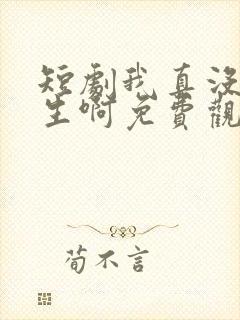 短劇我真没
生啊免費觀
荀不言